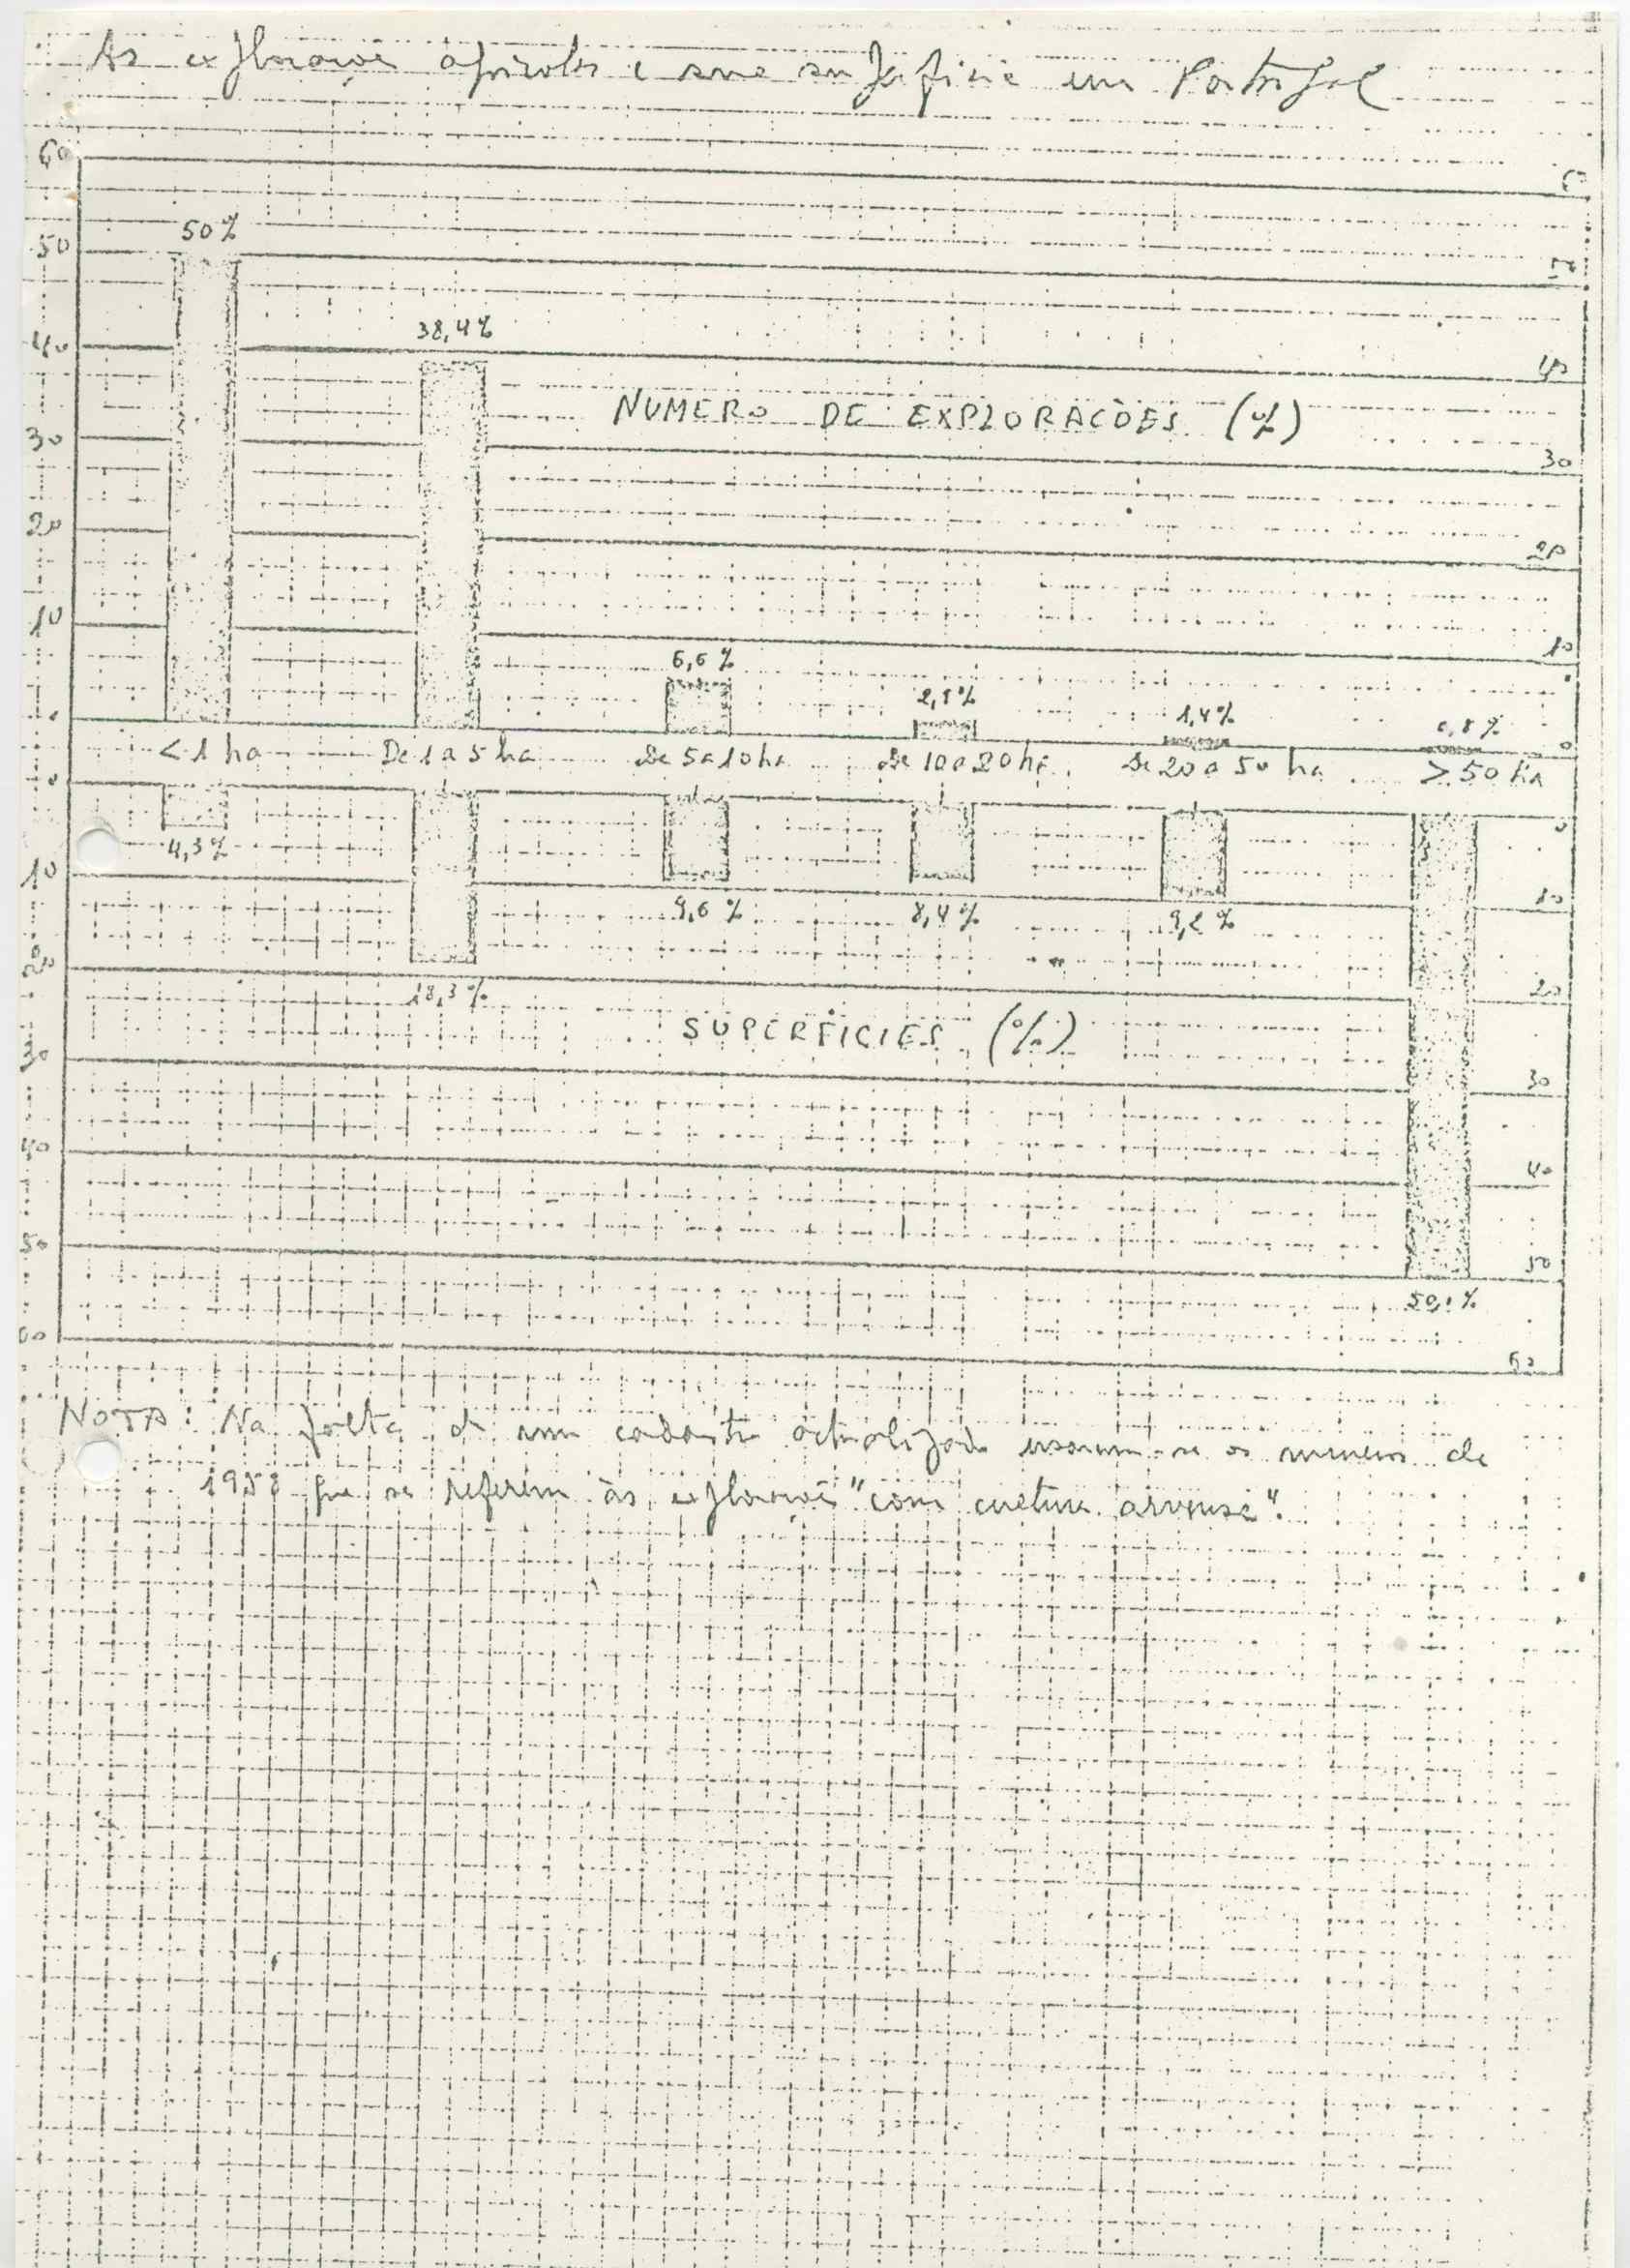 As explorações agrícolas e sua superfície em Portugal
60
50
50 %
50
40
38,4 %
40
NUMERO DE EXPLORAÇÕES (%)
30
30
20
20
10
10
6,6 %
2,8 %
1,4 %
0,8 %
0
0
< 1 ha
De 1 a 5 ha
De 5 a 10 ha
De 10 a 20 ha
De 20 a 50 ha
> 50 ha
0
0
4,3 %
10
10
9,6 %
8,4 %
9,2 %
20
20
18,3 %
SUPERFICIES (%)
30
30
40
40
50
50
50,1 %
60
60
NOTA: Na falta de um cadastro actualizado usaram-se os numeros de
que se referem às explorações "com cultura arvense".